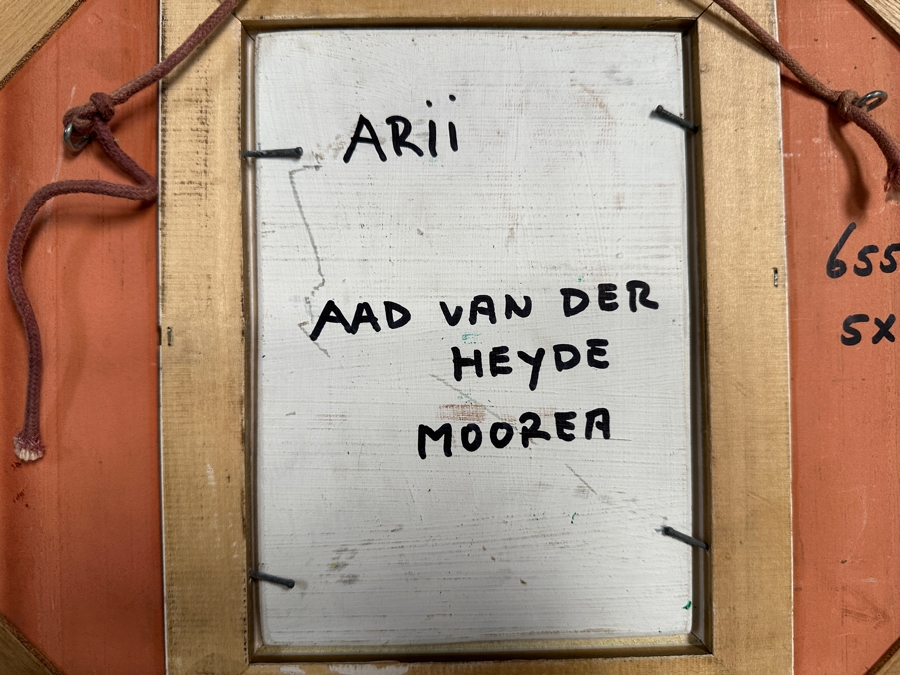 ARii
AAD VAN DER
HEYDE
MOOREA
655
5X